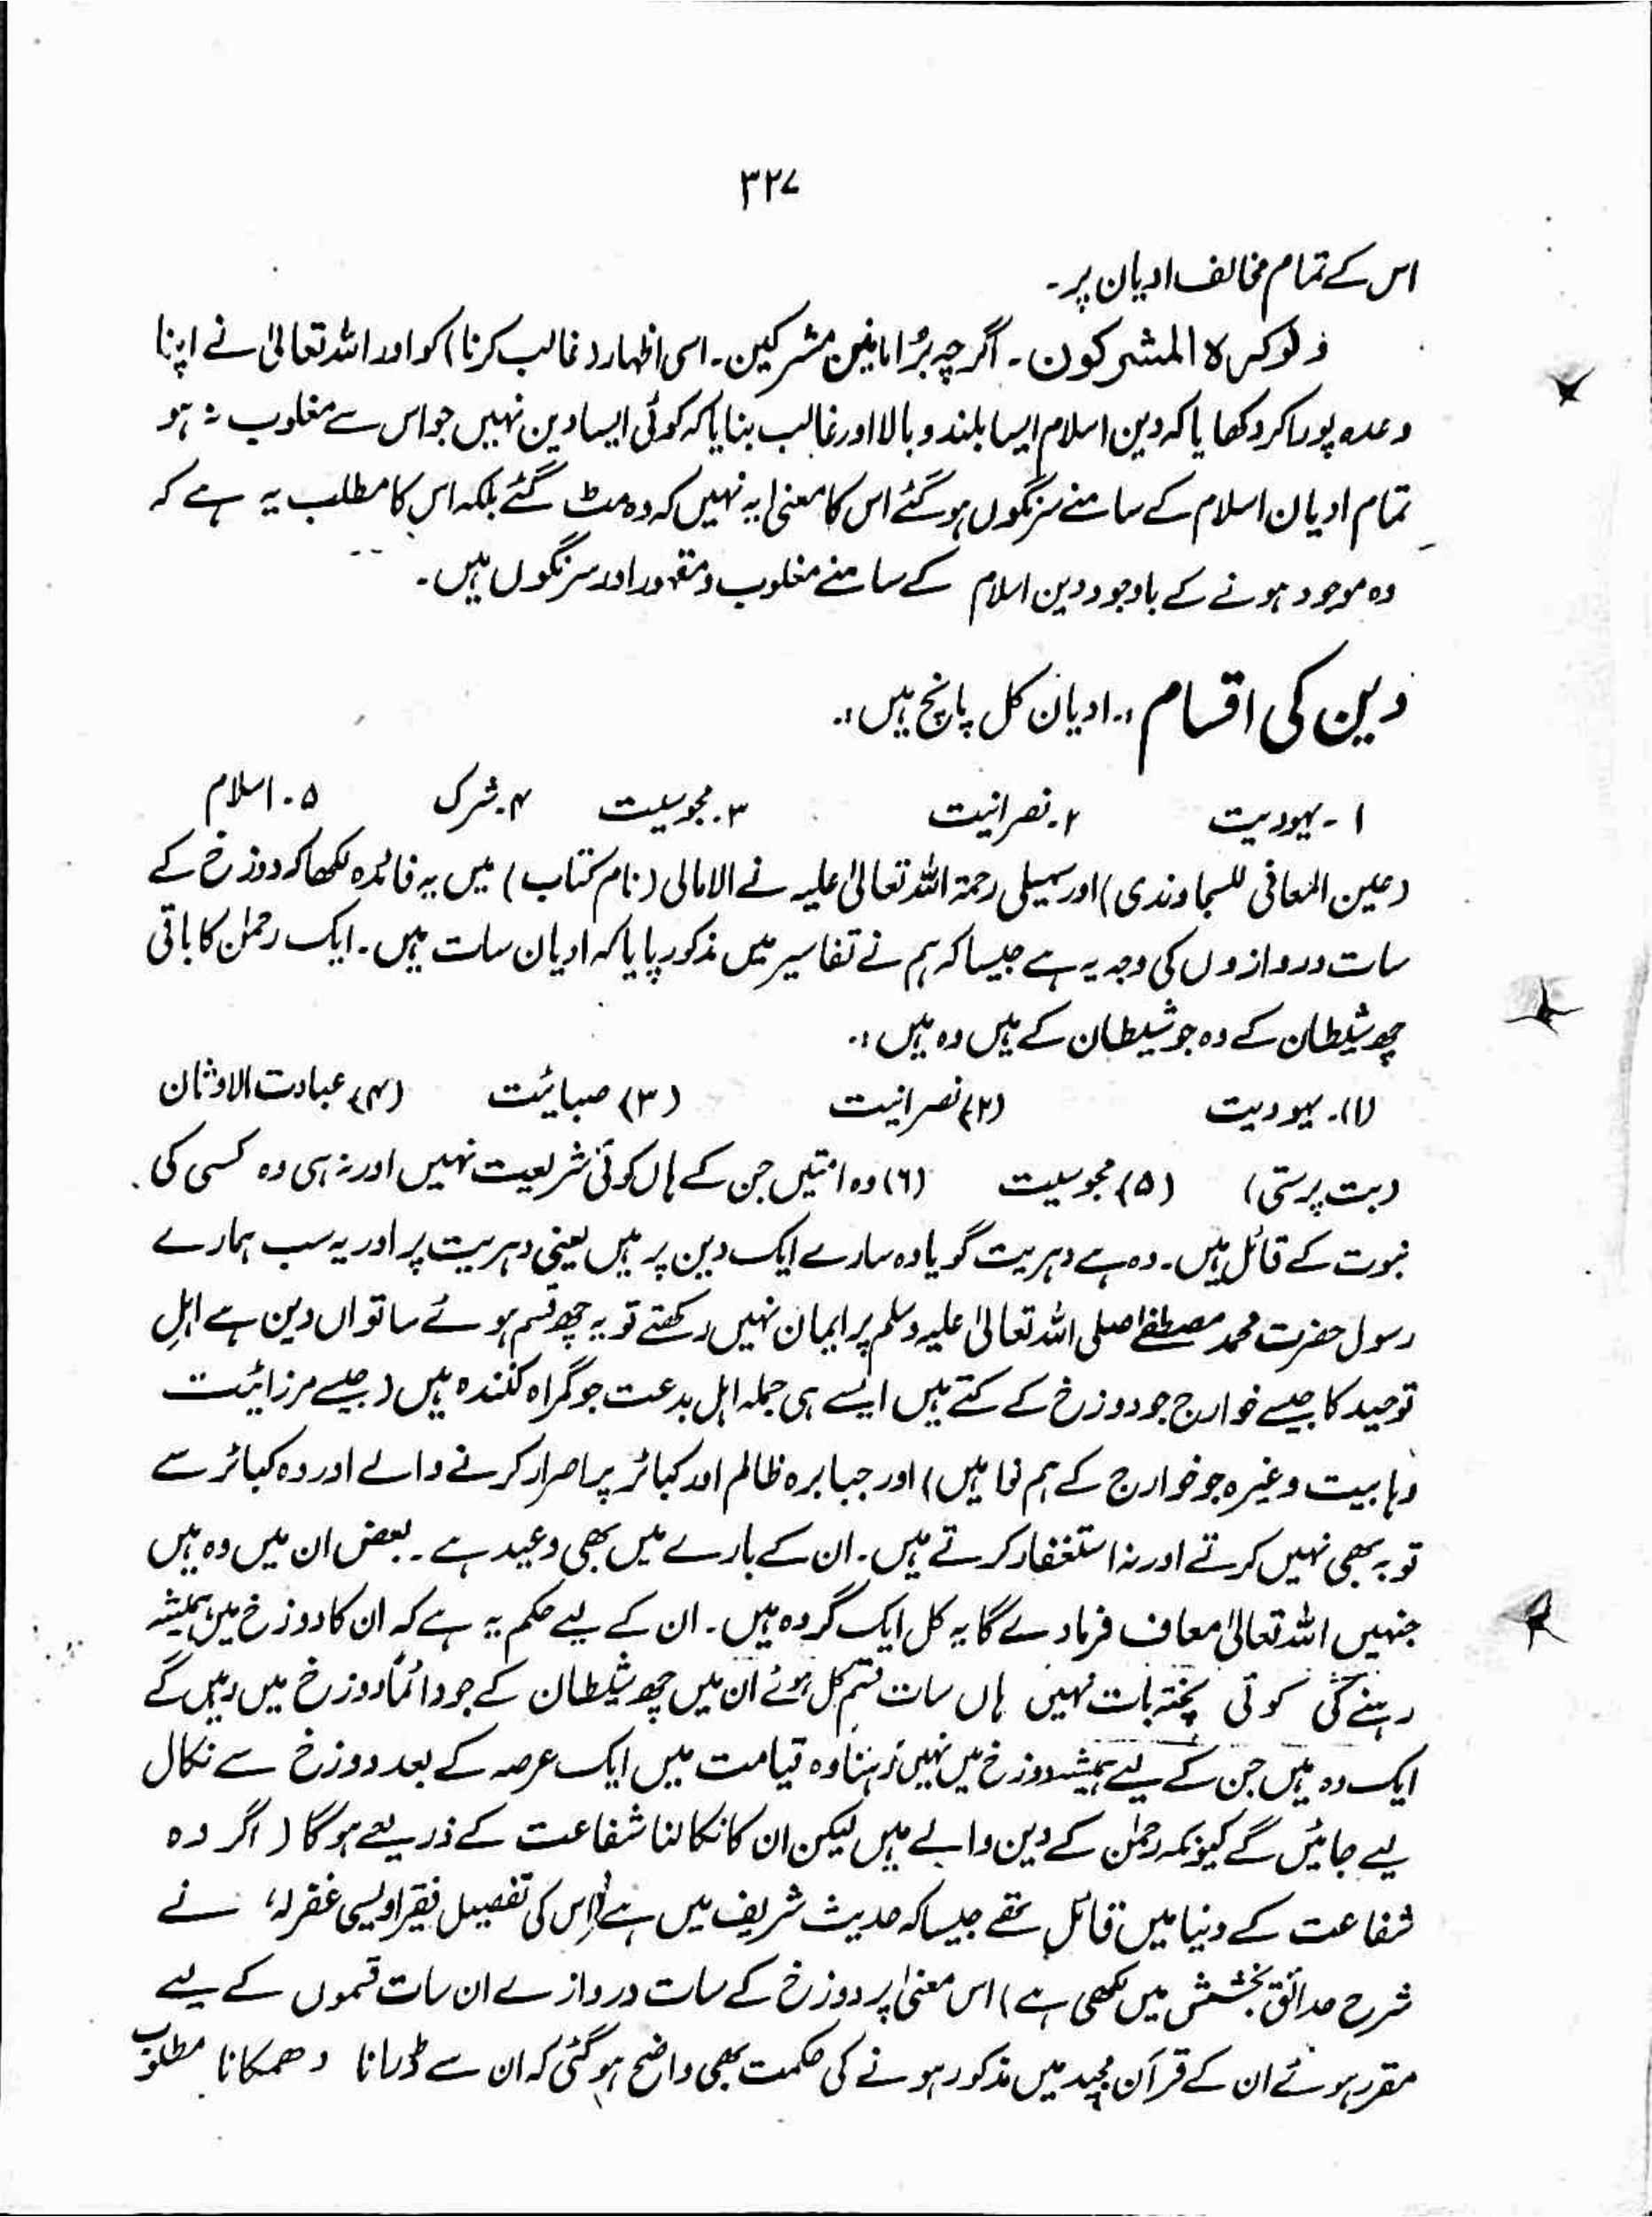 ۳۲۷
اس کے تمام مخالف ادیان پر۔
ولوکرہ المشرکون۔ اگرچہ بُرا مانیں مشرکین۔ اسی اظہار (غالب کرنا) کو اور اللہ تعالیٰ نے اپنا
وعدہ پورا کر دکھایا کہ دین اسلام ایسا بلند و بالا اور غالب بنایا کہ کوئی ایسا دین نہیں جو اس سے مغلوب نہ ہو
تمام ادیان اسلام کے سامنے سرنگوں ہو گئے اس کا معنیٰ یہ نہیں کہ وہ مٹ گئے بلکہ اس کا مطلب یہ ہے کہ
وہ موجود ہونے کے باوجود دین اسلام کے سامنے مغلوب و مقہور اور سرنگوں ہیں۔
دین کی اقسام :۔ ادیان کل پانچ ہیں :۔
۱۔ یہودیت ۲۔ نصرانیت ۳۔ مجوسیت ۴۔ شرک ۵۔ اسلام
(عین المعانی للسجاوندی) اور سہیلی رحمۃ اللہ تعالیٰ علیہ نے الامالی (نام کتاب) میں یہ فائدہ لکھا کہ دوزخ کے
سات دروازوں کی وجہ یہ ہے جیسا کہ ہم نے تفاسیر میں مذکور پایا کہ ادیان سات ہیں۔ ایک رحمٰن کا باقی
چھ شیطان کے وہ جو شیطان کے ہیں وہ ہیں :۔
(۱)۔ یہودیت (۲) نصرانیت (۳) صبائیت (۴) عبادت الاوثان
(بت پرستی) (۵) مجوسیت (۶) وہ امتیں جن کے ہاں کوئی شریعت نہیں اور نہ ہی وہ کسی کی
نبوت کے قائل ہیں۔ وہ ہے دہریت گویا وہ سارے ایک دین پر ہیں یعنی دہریت پر اور یہ سب ہمارے
رسول حضرت محمد مصطفےٰ صلی اللہ تعالیٰ علیہ وسلم پر ایمان نہیں رکھتے تو یہ چھ قسم ہوئے ساتواں دین ہے اہلِ
توحید کا جیسے خوارج جو دوزخ کے کتے ہیں ایسے ہی جملہ اہل بدعت جو گمراہ کنندہ ہیں (جیسے مرزائیت
وہابیت وغیرہ جو خوارج کے ہم نوا ہیں) اور جبابرہ ظالم اور کبائر پر اصرار کرنے والے اور وہ کبائر سے
توبہ بھی نہیں کرتے اور نہ استغفار کرتے ہیں۔ ان کے بارے میں بھی وعید ہے۔ بعض ان میں وہ ہیں
جنہیں اللہ تعالیٰ معاف فرما دے گا یہ کل ایک گروہ ہیں۔ ان کے لیے حکم یہ ہے کہ ان کا دوزخ میں ہمیشہ
رہنے کی کوئی پختہ بات نہیں ہاں سات قسم کل ہوئے ان میں چھ شیطان کے جو دائماً دوزخ میں رہیں گے
ایک وہ ہیں جن کے لیے ہمیشہ دوزخ میں نہیں رہنا وہ قیامت میں ایک عرصہ کے بعد دوزخ سے نکال
لیے جائیں گے کیونکہ رحمٰن کے دین والے ہیں لیکن ان کا نکالنا شفاعت کے ذریعے ہوگا (اگر وہ
شفاعت کے دنیا میں قائل تھے جیسا کہ حدیث شریف میں ہے (اس کی تفصیل فقیر اویسی غفرلہٗ نے
شرح حدائق بخشش میں لکھی ہے) اس معنیٰ پر دوزخ کے سات دروازے ان سات قسموں کے لیے
مقرر ہوئے ان کے قرآن مجید میں مذکور ہونے کی حکمت بھی واضح ہو گئی کہ ان سے ڈرانا دھمکانا مطلوب